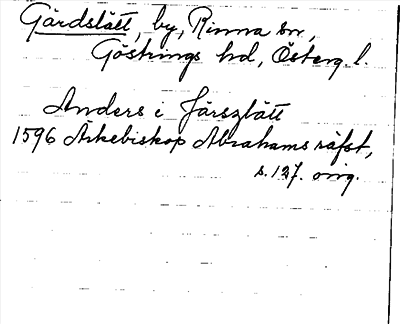 Gärdslätt, by, Rinna sn,
Göstrings hd, Österg. l.
Anders i Järszlätt
1596 Ärkebiskop Abrahams räfst,
s. 127. orig.